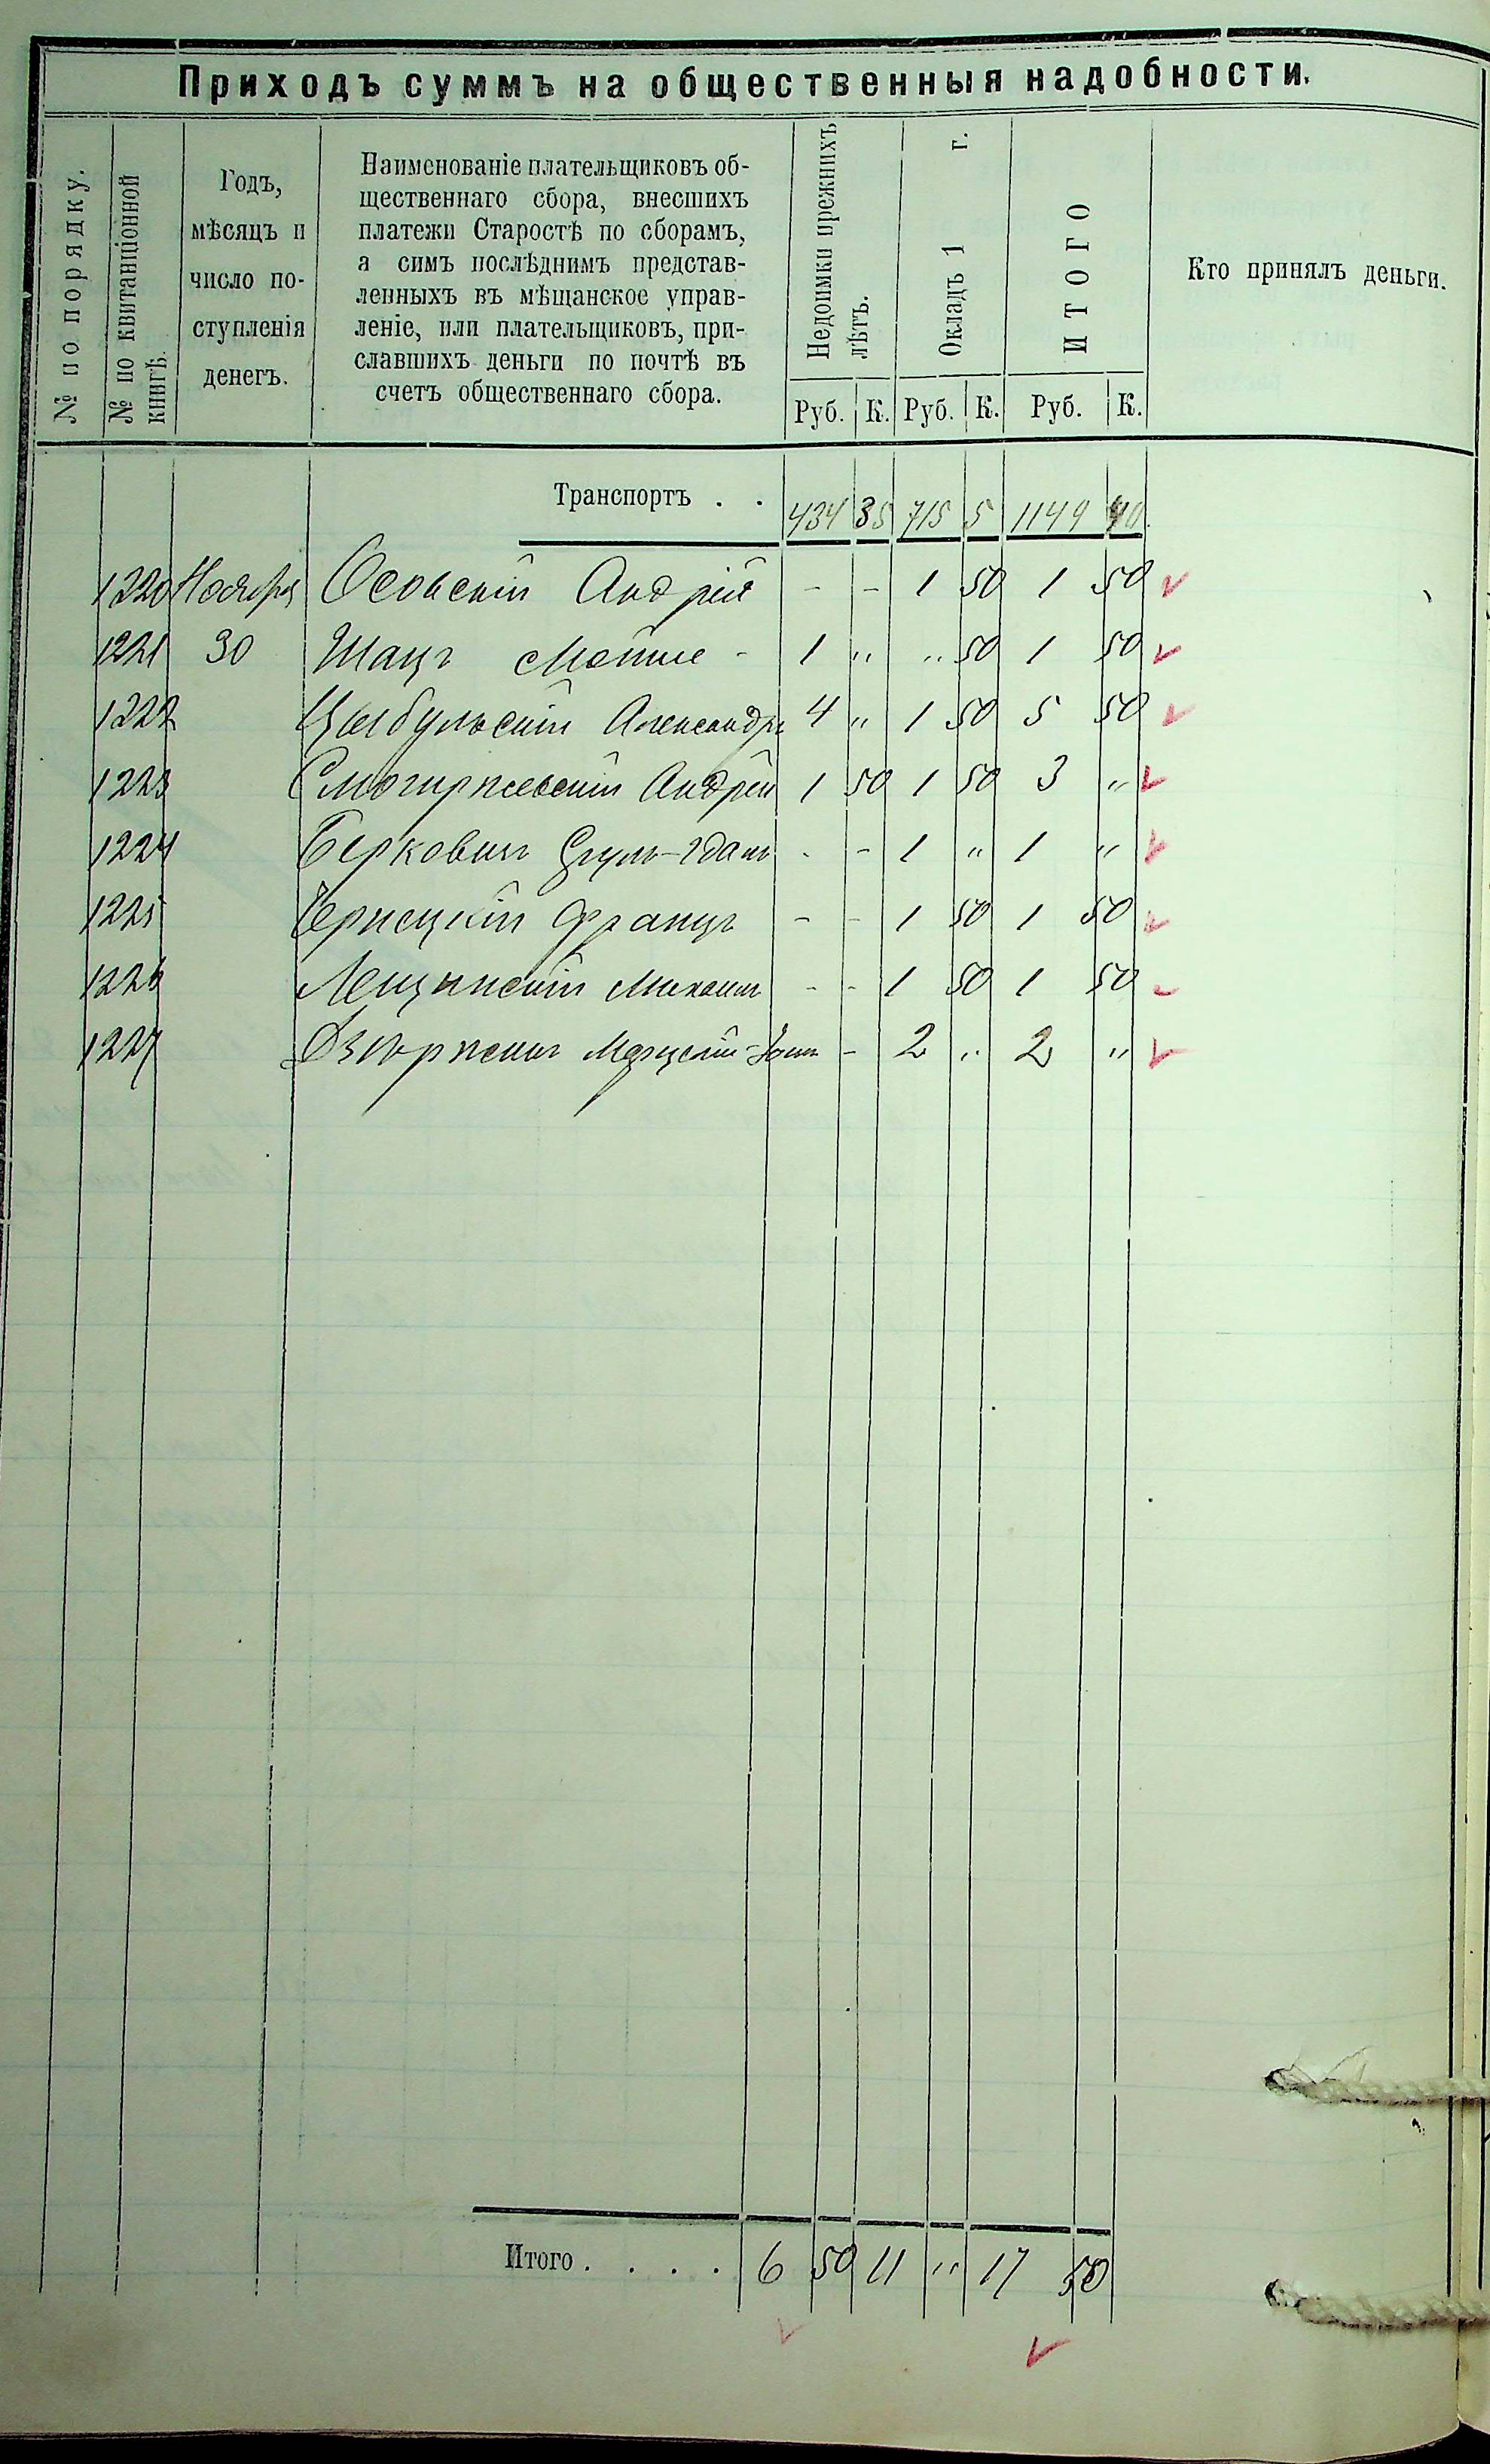 Приходъ суммъ на общественныя надобности.
№ по порядку.
№ по квитанціонной
книгѣ.
Годъ,
мѣсяцъ и
число по-
ступленія
денегъ.
Наименованіе плательщиковъ об-
щественнаго сбора, внесшихъ
платежи Старостѣ по сборамъ,
а симъ послѣднимъ представ-
ленныхъ въ мѣщанское управ-
леніе, или плательщиковъ, при-
славшихъ деньги по почтѣ въ
счетъ общественнаго сбора.
Недоимки прежнихъ
лѣтъ.
Окладъ 1 г.
ИТОГО
Кто принялъ деньги.
Руб. К. Руб. К. Руб. К.
Транспортъ . . 434 35 715 5 1149 40
1220 Ноября Осовскій Андрій - - 1 50 1 50
1221 30 Шацъ Мотше - 1 " " 50 1 50
1222 Цыбульскій Александръ 4 " 1 50 5 50
1223 Смогиржевскій Андрій 1 50 1 50 3 "
1224 Берковичъ - - 1 " 1 "
1225 Чернецкій Францъ - - 1 50 1 50
1226 Лещинскій Михаилъ - - 1 50 1 50
1227 - 2 " 2 "
Итого . . . . 6 50 11 " 17 50